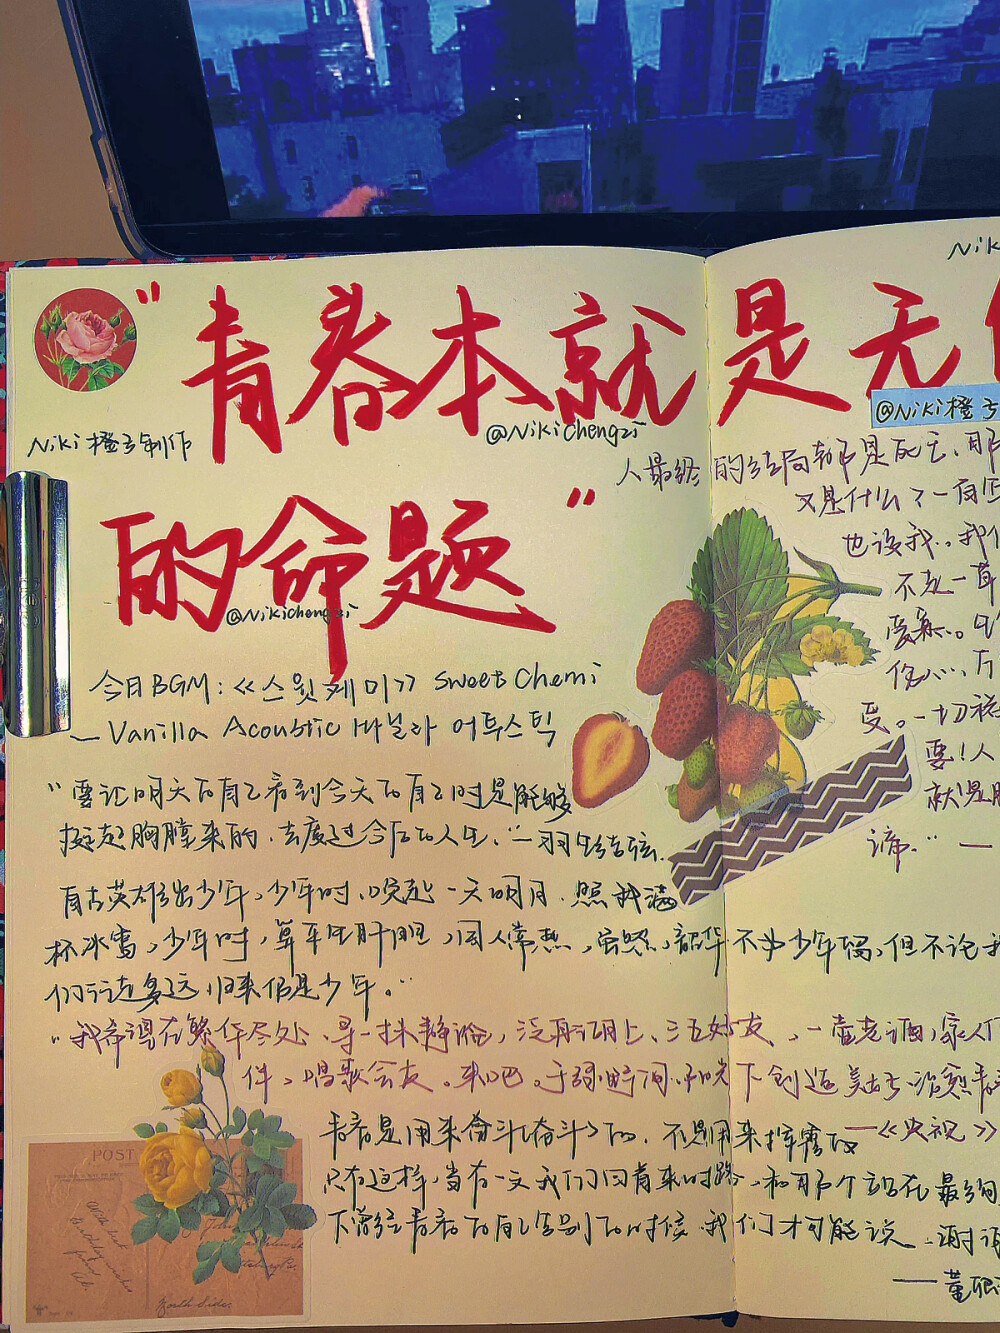 Niki
"青春本就是无
@Niki橙子
Niki橙子制作
@Nikichengzi
人最终的结局都是死亡,那
又是什么?一有
也该我..我们
不走一草
受
的命题"
@Nikichengzi
今日BGM:《스윗케미》 Sweet Chemi
—Vanilla Acoustic 바닐라 어쿠스틱
受。一切
要!人
就是
谛."—
"要让明天的自己看到今天的自己时是能够
挺起胸膛来的.去度过今后的人生."—羽生结弦.
自古英雄出少年,少年时,唤起一天明月.照我满
杯冰雪,少年时,尊年生肝胆,同人常热,虽然,韶华不为少年留,但不论我
们行走多远,归来仍是少年."
"我希望在繁华尽处、寻一抹静谧,泛舟湖上、三五好友、一壶老酒,家人
伴,唱歌会友。来吧。于阳光下创造美好,治愈
—《央视》
青春是用来奋斗(奋斗)的,不是用来挥霍的
只有这样,当有一天我们回首来时路,和那个站在最绚
下曾经青春的自己告别的时候.我们才可能说、谢谢
—董卿
POST
North Side